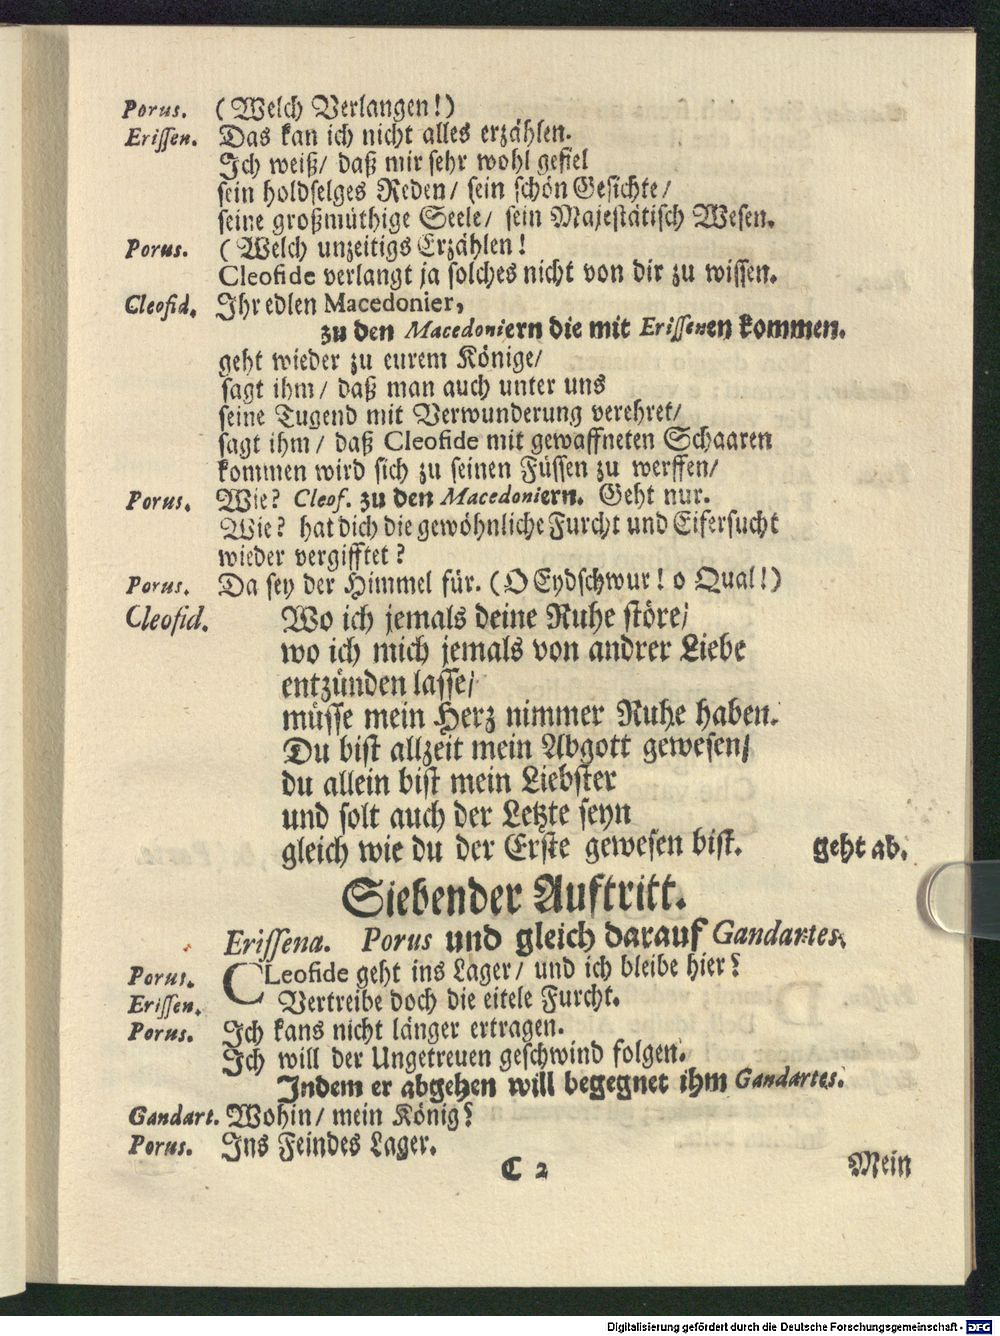 Porus. (Welch Verlangen!)
Erissen. Das kan ich nicht alles erzählen.
Ich weiß/ daß mir sehr wohl gefiel
sein holdselges Reden/ sein schön Gesichte/
seine großmüthige Seele/ sein Majestätisch Wesen.
Porus. (Welch unzeitigs Erzählen!
Cleofide verlangt ja solches nicht von dir zu wissen.
Cleofid. Ihr edlen Macedonier,
zu den Macedoniern die mit Erissenen kommen.
geht wieder zu eurem Könige/
sagt ihm/ daß man auch unter uns
seine Tugend mit Verwunderung verehret/
sagt ihm/ daß Cleofide mit gewaffneten Schaaren
kommen wird sich zu seinen Füssen zu werffen/
Porus. Wie? Cleof. zu den Macedoniern. Geht nur.
Wie? hat dich die gewöhnliche Furcht und Eifersucht
wieder vergifftet?
Porus. Da sey der Himmel für. (O Eydschwur! o Qual!)
Cleofid. Wo ich jemals deine Ruhe störe/
wo ich mich jemals von andrer Liebe
entzünden lasse/
müsse mein Herz nimmer Ruhe haben.
Du bist allzeit mein Abgott gewesen/
du allein bist mein Liebster
und solt auch der Letzte seyn
gleich wie du der Erste gewesen bist. geht ab.
Siebender Auftritt.
Erissena. Porus und gleich darauf Gandartes.
Porus. CLeofide geht ins Lager/ und ich bleibe hier?
Erissen. Vertreibe doch die eitele Furcht.
Porus. Ich kans nicht länger ertragen.
Ich will der Ungetreuen geschwind folgen.
Indem er abgehen will begegnet ihm Gandartes.
Gandart. Wohin/ mein König?
Porus. Ins Feindes Lager.
C 2 Mein
Digitalisierung gefördert durch die Deutsche Forschungsgemeinschaft - DFG